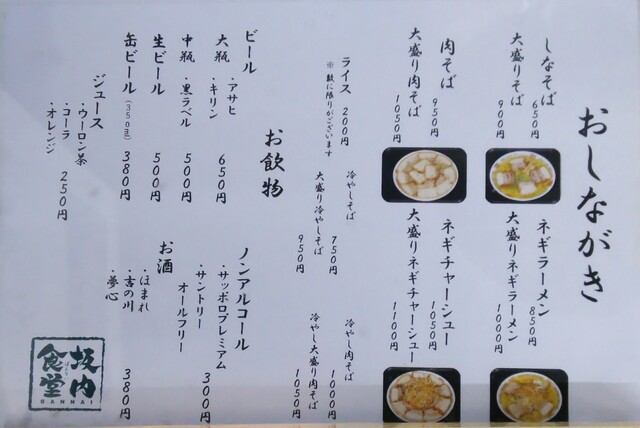 おしながき
しなそば 650円
大盛りしなそば 900円
ネギラーメン 850円
大盛りネギラーメン 1000円
肉そば 950円
大盛り肉そば 1050円
ネギチャーシュー 1050円
大盛りネギチャーシュー 1100円
ライス 200円
※数に限りがございます
冷やしそば 750円
大盛り冷やしそば 950円
冷やし肉そば 1000円
冷やし大盛り肉そば 1050円
お飲物
ビール
大瓶 ・アサヒ
・キリン 650円
中瓶 ・黒ラベル 500円
生ビール 500円
缶ビール (350ml) 380円
ジュース
・ウーロン茶
・コーラ 250円
・オレンジ
ノンアルコール
・サッポロプレミアム
・サントリー 300円
オールフリー
お酒
・ほまれ
・吉の川 380円
・夢心
坂内
食堂
BANNAI